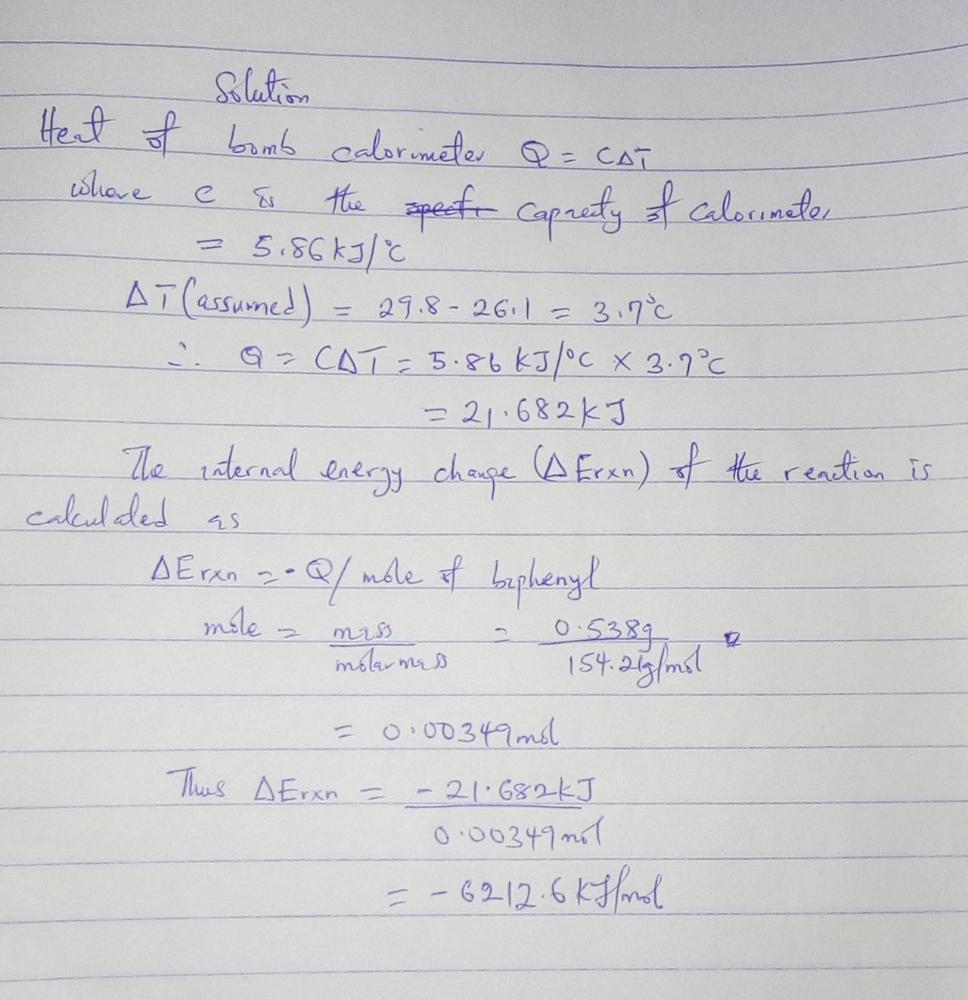 Solution
Heat of bomb calorimeter Q = CΔT
where c is the capacity of calorimeter
= 5.86 kJ/°C
ΔT (assumed) = 29.8 - 26.1 = 3.7°C
∴ Q = CΔT = 5.86 kJ/°C × 3.7°C
= 21.682 kJ
The internal energy change (ΔErxn) of the reaction is
calculated as
ΔErxn = -Q/mole of biphenyl
mole = mass/molar mass = 0.538g/154.21g/mol
= 0.00349 mol
Thus ΔErxn = -21.682 kJ/0.00349 mol
= -6212.6 kJ/mol